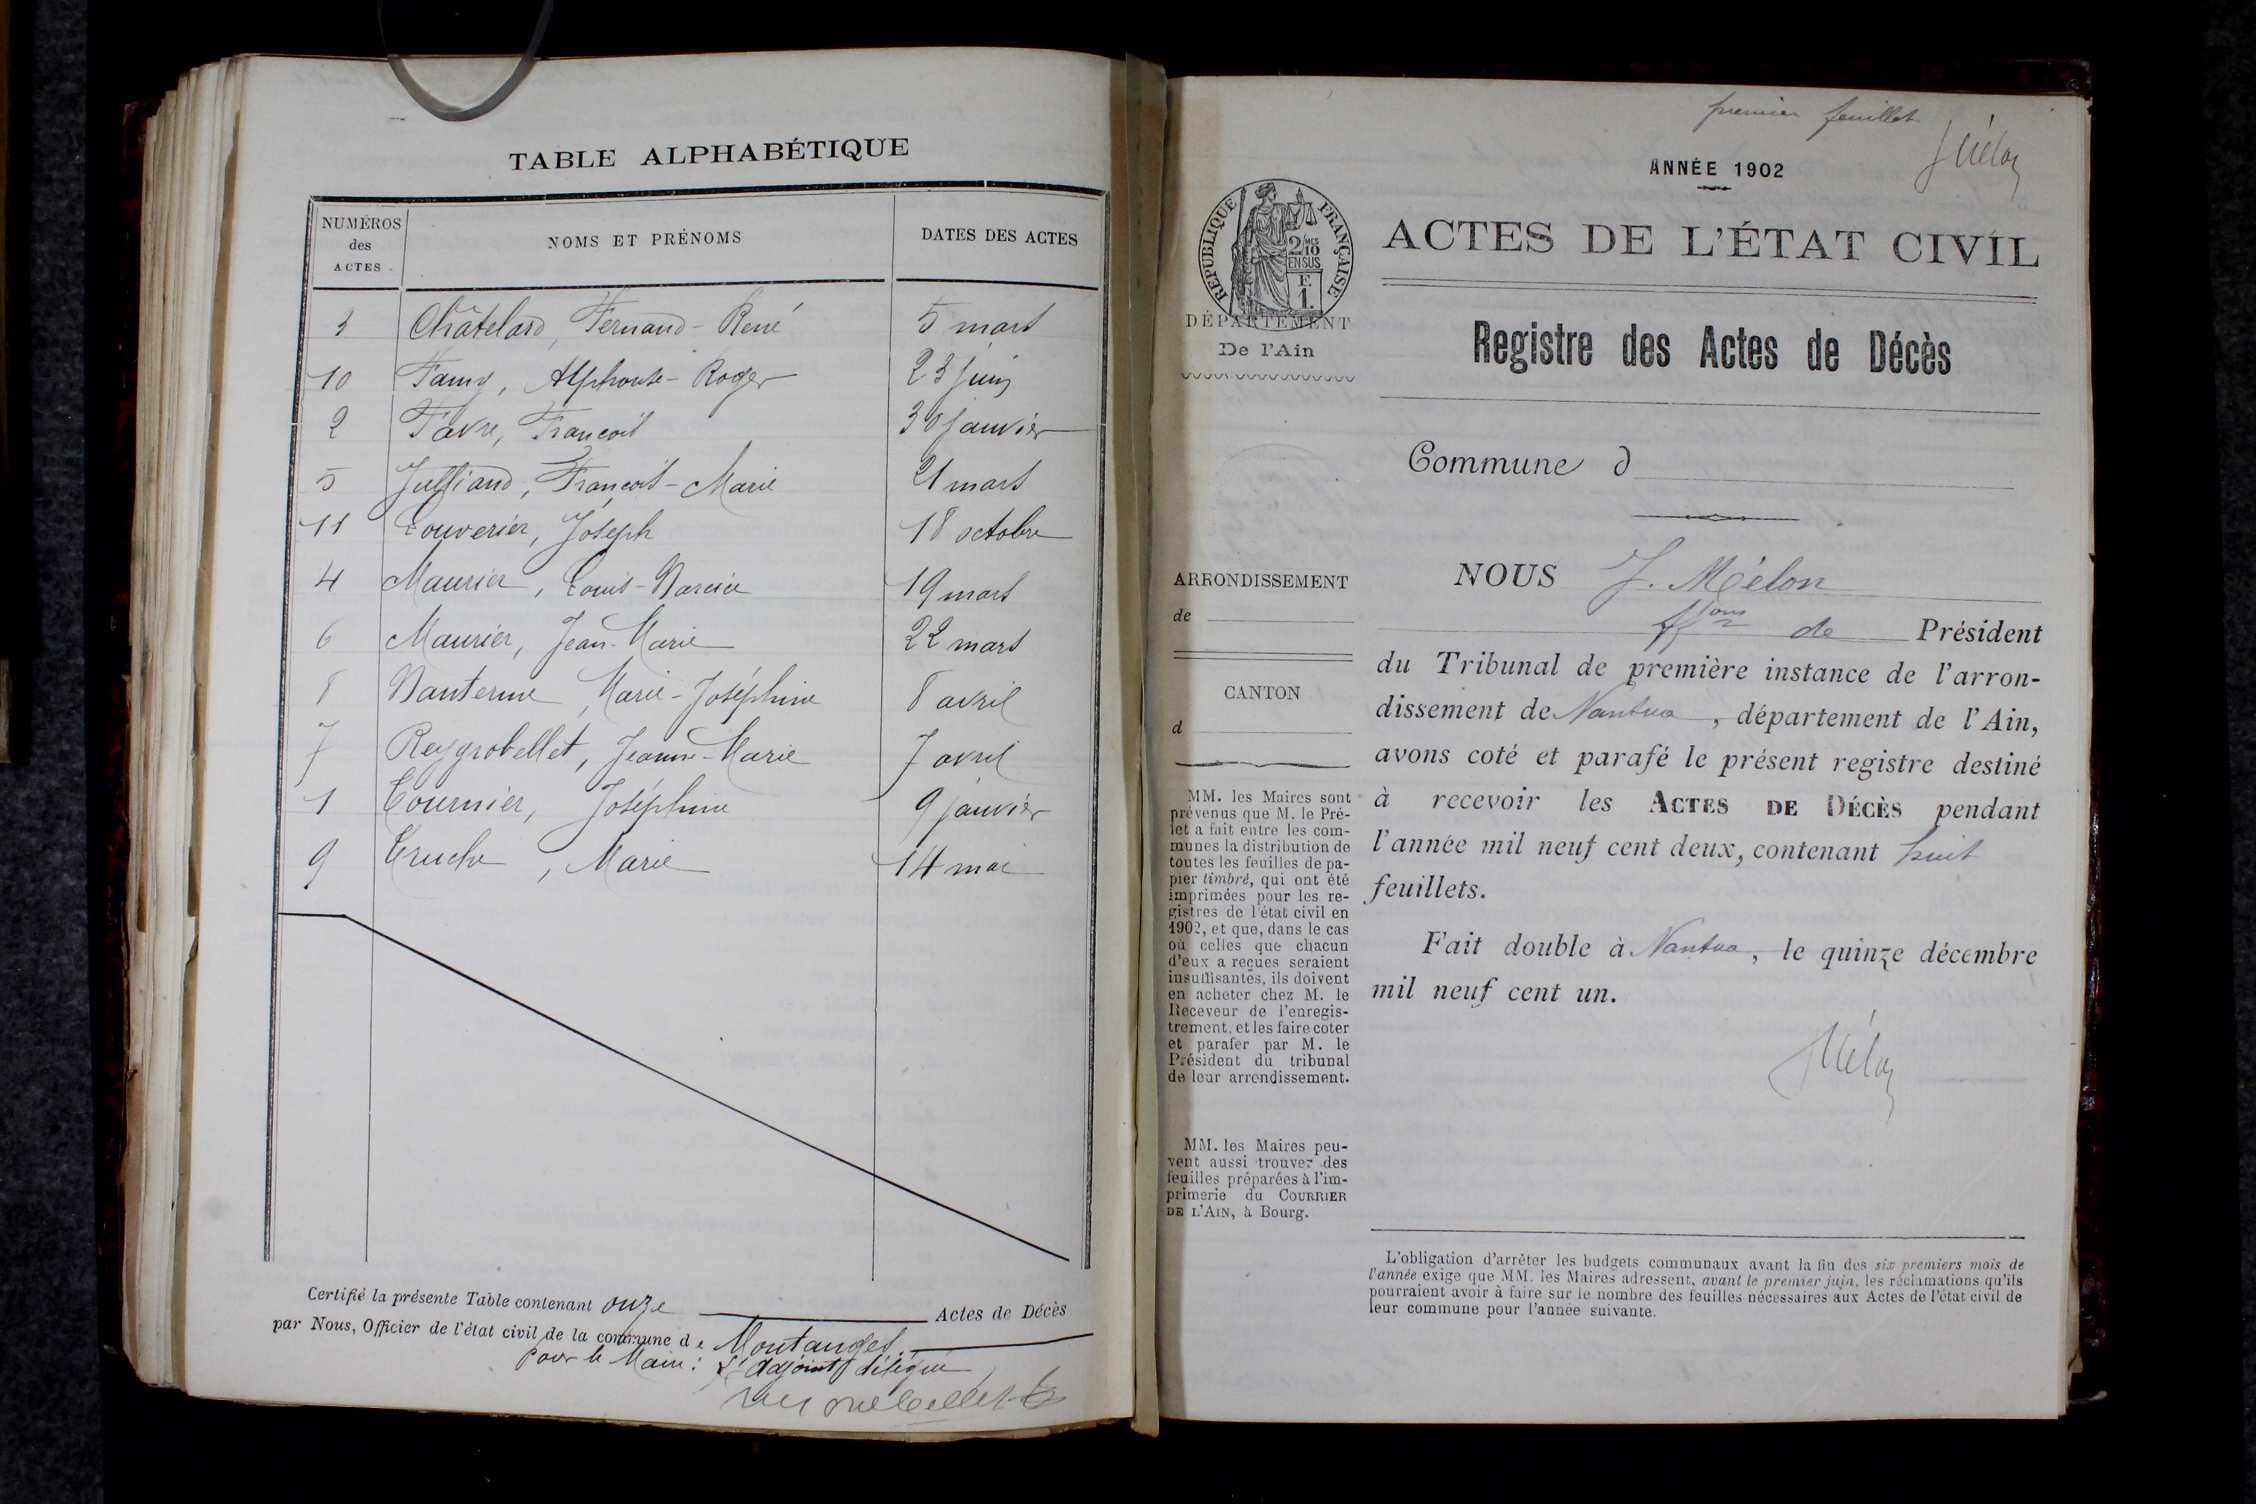 TABLE ALPHABÉTIQUE
NUMÉROS des ACTES
NOMS ET PRÉNOMS
DATES DES ACTES
3 Châtelard, Fernand-René 5 mars
10 Famy, Alphonse-Roger 23 juin
2 Favre, François 30 janvier
5 Julliand, François-Marie 21 mars
11 Louverier, Joseph 18 octobre
4 Maurier, Louis-Narcisse 19 mars
6 Maurier, Jean-Marie 22 mars
8 Nanterme, Marie-Joséphine 8 avril
7 Reygrobellet, Jeanne-Marie 7 avril
1 Tournier, Joséphine 9 janvier
9 Truche, Marie 14 mai
Certifié la présente Table contenant onze Actes de Décès
par Nous, Officier de l'état civil de la commune de Montanges.
Pour le Maire: L'adjoint délégué
premier feuillet
JMélon
ANNÉE 1902
RÉPUBLIQUE FRANÇAISE
2/10MES
EN SUS
F.
1.
ACTES DE L'ÉTAT CIVIL
DÉPARTEMENT
De l'Ain
Registre des Actes de Décès
Commune d
ARRONDISSEMENT
de
CANTON
d
MM. les Maires sont
prévenus que M. le Pré-
fet a fait entre les com-
munes la distribution de
toutes les feuilles de pa-
pier timbré, qui ont été
imprimées pour les re-
gistres de l'état civil en
1902, et que, dans le cas
où celles que chacun
d'eux a reçues seraient
insuffisantes, ils doivent
en acheter chez M. le
Receveur de l'enregis-
trement, et les faire coter
et parafer par M. le
Président du tribunal
de leur arrondissement.
MM. les Maires peu-
vent aussi trouver des
feuilles préparées à l'im-
primerie du COURRIER
DE L'AIN, à Bourg.
NOUS J. Mélon
ffons de Président
du Tribunal de première instance de l'arron-
dissement de Nantua, département de l'Ain,
avons coté et parafé le présent registre destiné
à recevoir les ACTES DE DÉCÈS pendant
l'année mil neuf cent deux, contenant huit
feuillets.
Fait double à Nantua, le quinze décembre
mil neuf cent un.
JMélon
L'obligation d'arrêter les budgets communaux avant la fin des six premiers mois de
l'année exige que MM. les Maires adressent, avant le premier juin, les réclamations qu'ils
pourraient avoir à faire sur le nombre des feuilles nécessaires aux Actes de l'état civil de
leur commune pour l'année suivante.